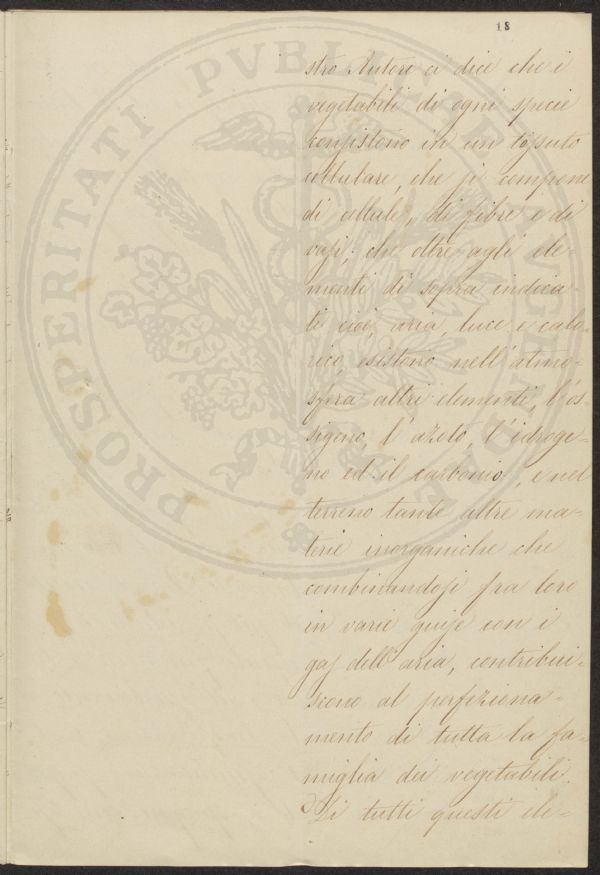 18
stro Autore ci dice che i
vegetabili di ogni specie
consistono in un tessuto
cellulare, che si compone
di cellule, di fibre e di
vasi, che oltre agli ele-
menti di sopra indica-
ti cioè, aria, luce e calo-
rico, esistono nell'atmo-
sfera altri elementi, l'os-
sigeno, l'azoto, l'idroge-
no ed il carbonio, e nel
terreno tante altre ma-
terie inorganiche che
combinandosi fra loro
in varie guise con i
gas dell'aria, contribui-
scono al perfeziona-
mento di tutta la fa-
miglia dei vegetabili.
Di tutti questi ele-
PROSPERITATI PVBLICAE AVGENDAE